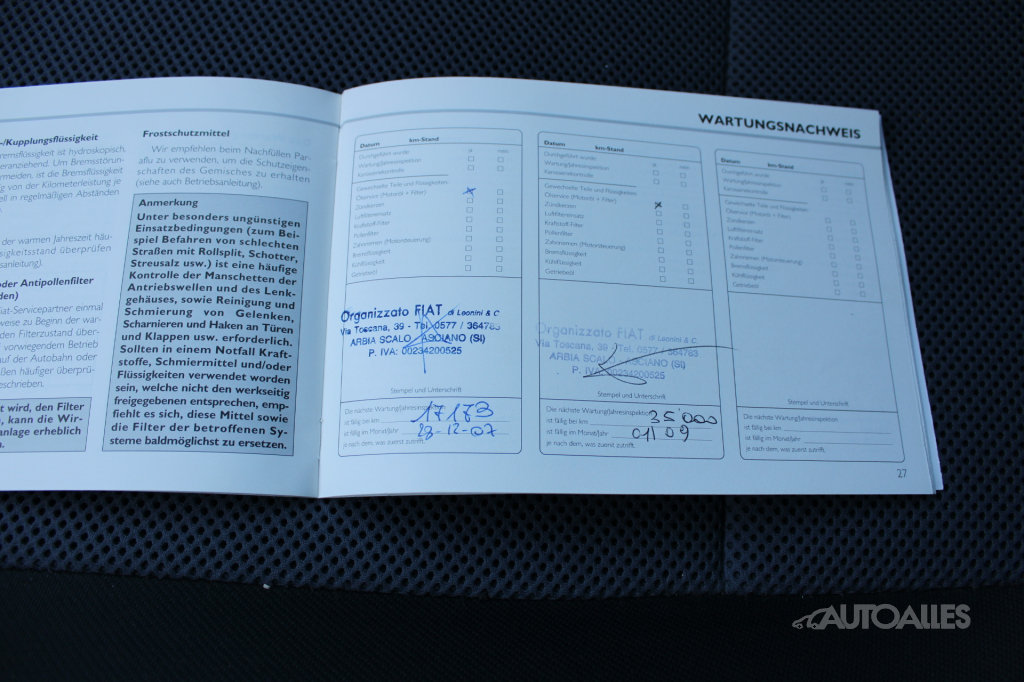 -/Kupplungsflüssigkeit
remsflüssigkeit ist hydroskopisch,
eranziehend. Um Bremsstörun-
rmeiden, ist die Bremsflüssigkeit
g von der Kilometerleistung je
ell in regelmäßigen Abständen
der warmen Jahreszeit häu-
sigkeitsstand überprüfen
sanleitung).
oder Antipollenfilter
den)
iat-Servicepartner einmal
weise zu Beginn der war-
den Filterzustand über-
vorwiegendem Betrieb
auf der Autobahn oder
ßen häufiger überprü-
eschrieben.
t wird, den Filter
n, kann die Wir-
anlage erheblich
n.
Frostschutzmittel
Wir empfehlen beim Nachfüllen Par-
aflu zu verwenden, um die Schutzeigen-
schaften des Gemisches zu erhalten
(siehe auch Betriebsanleitung).
Anmerkung
Unter besonders ungünstigen
Einsatzbedingungen (zum Bei-
spiel Befahren von schlechten
Straßen mit Rollsplit, Schotter,
Streusalz usw.) ist eine häufige
Kontrolle der Manschetten der
Antriebswellen und des Lenk-
gehäuses, sowie Reinigung und
Schmierung von Gelenken,
Scharnieren und Haken an Türen
und Klappen usw. erforderlich.
Sollten in einem Notfall Kraft-
stoffe, Schmiermittel und/oder
Flüssigkeiten verwendet worden
sein, welche nicht den werkseitig
freigegebenen entsprechen, emp-
fiehlt es sich, diese Mittel sowie
die Filter der betroffenen Sy-
steme baldmöglichst zu ersetzen.
WARTUNGSNACHWEIS
Datum km-Stand
Durchgeführt wurde: ja nein
Wartung/Jahresinspektion
Karosseriekontrolle
Gewechselte Teile und Flüssigkeiten:
Ölservice (Motoröl + Filter)
Zündkerzen
Luftfiltereinsatz
Kraftstoff-Filter
Pollenfilter
Zahnriemen (Motorsteuerung)
Bremsflüssigkeit
Kühlflüssigkeit
Getriebeöl
Organizzato FIAT di Leonini & C
Via Toscana, 39 - Tel. 0577 / 364763
ARBIA SCALO - ASCIANO (SI)
P. IVA: 00234200525
Stempel und Unterschrift
Die nächste Wartung/Jahresinspektion
ist fällig bei km 17173
ist fällig im Monat/Jahr 28-12-07
je nach dem, was zuerst zutrifft.
Datum km-Stand
Durchgeführt wurde: ja nein
Wartung/Jahresinspektion
Karosseriekontrolle
Gewechselte Teile und Flüssigkeiten:
Ölservice (Motoröl + Filter)
Zündkerzen
Luftfiltereinsatz
Kraftstoff-Filter
Pollenfilter
Zahnriemen (Motorsteuerung)
Bremsflüssigkeit
Kühlflüssigkeit
Getriebeöl
Organizzato FIAT di Leonini & C.
Via Toscana, 39 - Tel. 0577 / 364763
ARBIA SCALO - ASCIANO (SI)
P. IVA: 00234200525
Stempel und Unterschrift
Die nächste Wartung/Jahresinspektion
ist fällig bei km 35'000
ist fällig im Monat/Jahr 01 09
je nach dem, was zuerst zutrifft.
Datum km-Stand
Durchgeführt wurde: ja nein
Wartung/Jahresinspektion
Karosseriekontrolle
Gewechselte Teile und Flüssigkeiten:
Ölservice (Motoröl + Filter)
Zündkerzen
Luftfiltereinsatz
Kraftstoff-Filter
Pollenfilter
Zahnriemen (Motorsteuerung)
Bremsflüssigkeit
Kühlflüssigkeit
Getriebeöl
Stempel und Unterschrift
Die nächste Wartung/Jahresinspektion
ist fällig bei km
ist fällig im Monat/Jahr
je nach dem, was zuerst zutrifft.
27
AUTOALLES